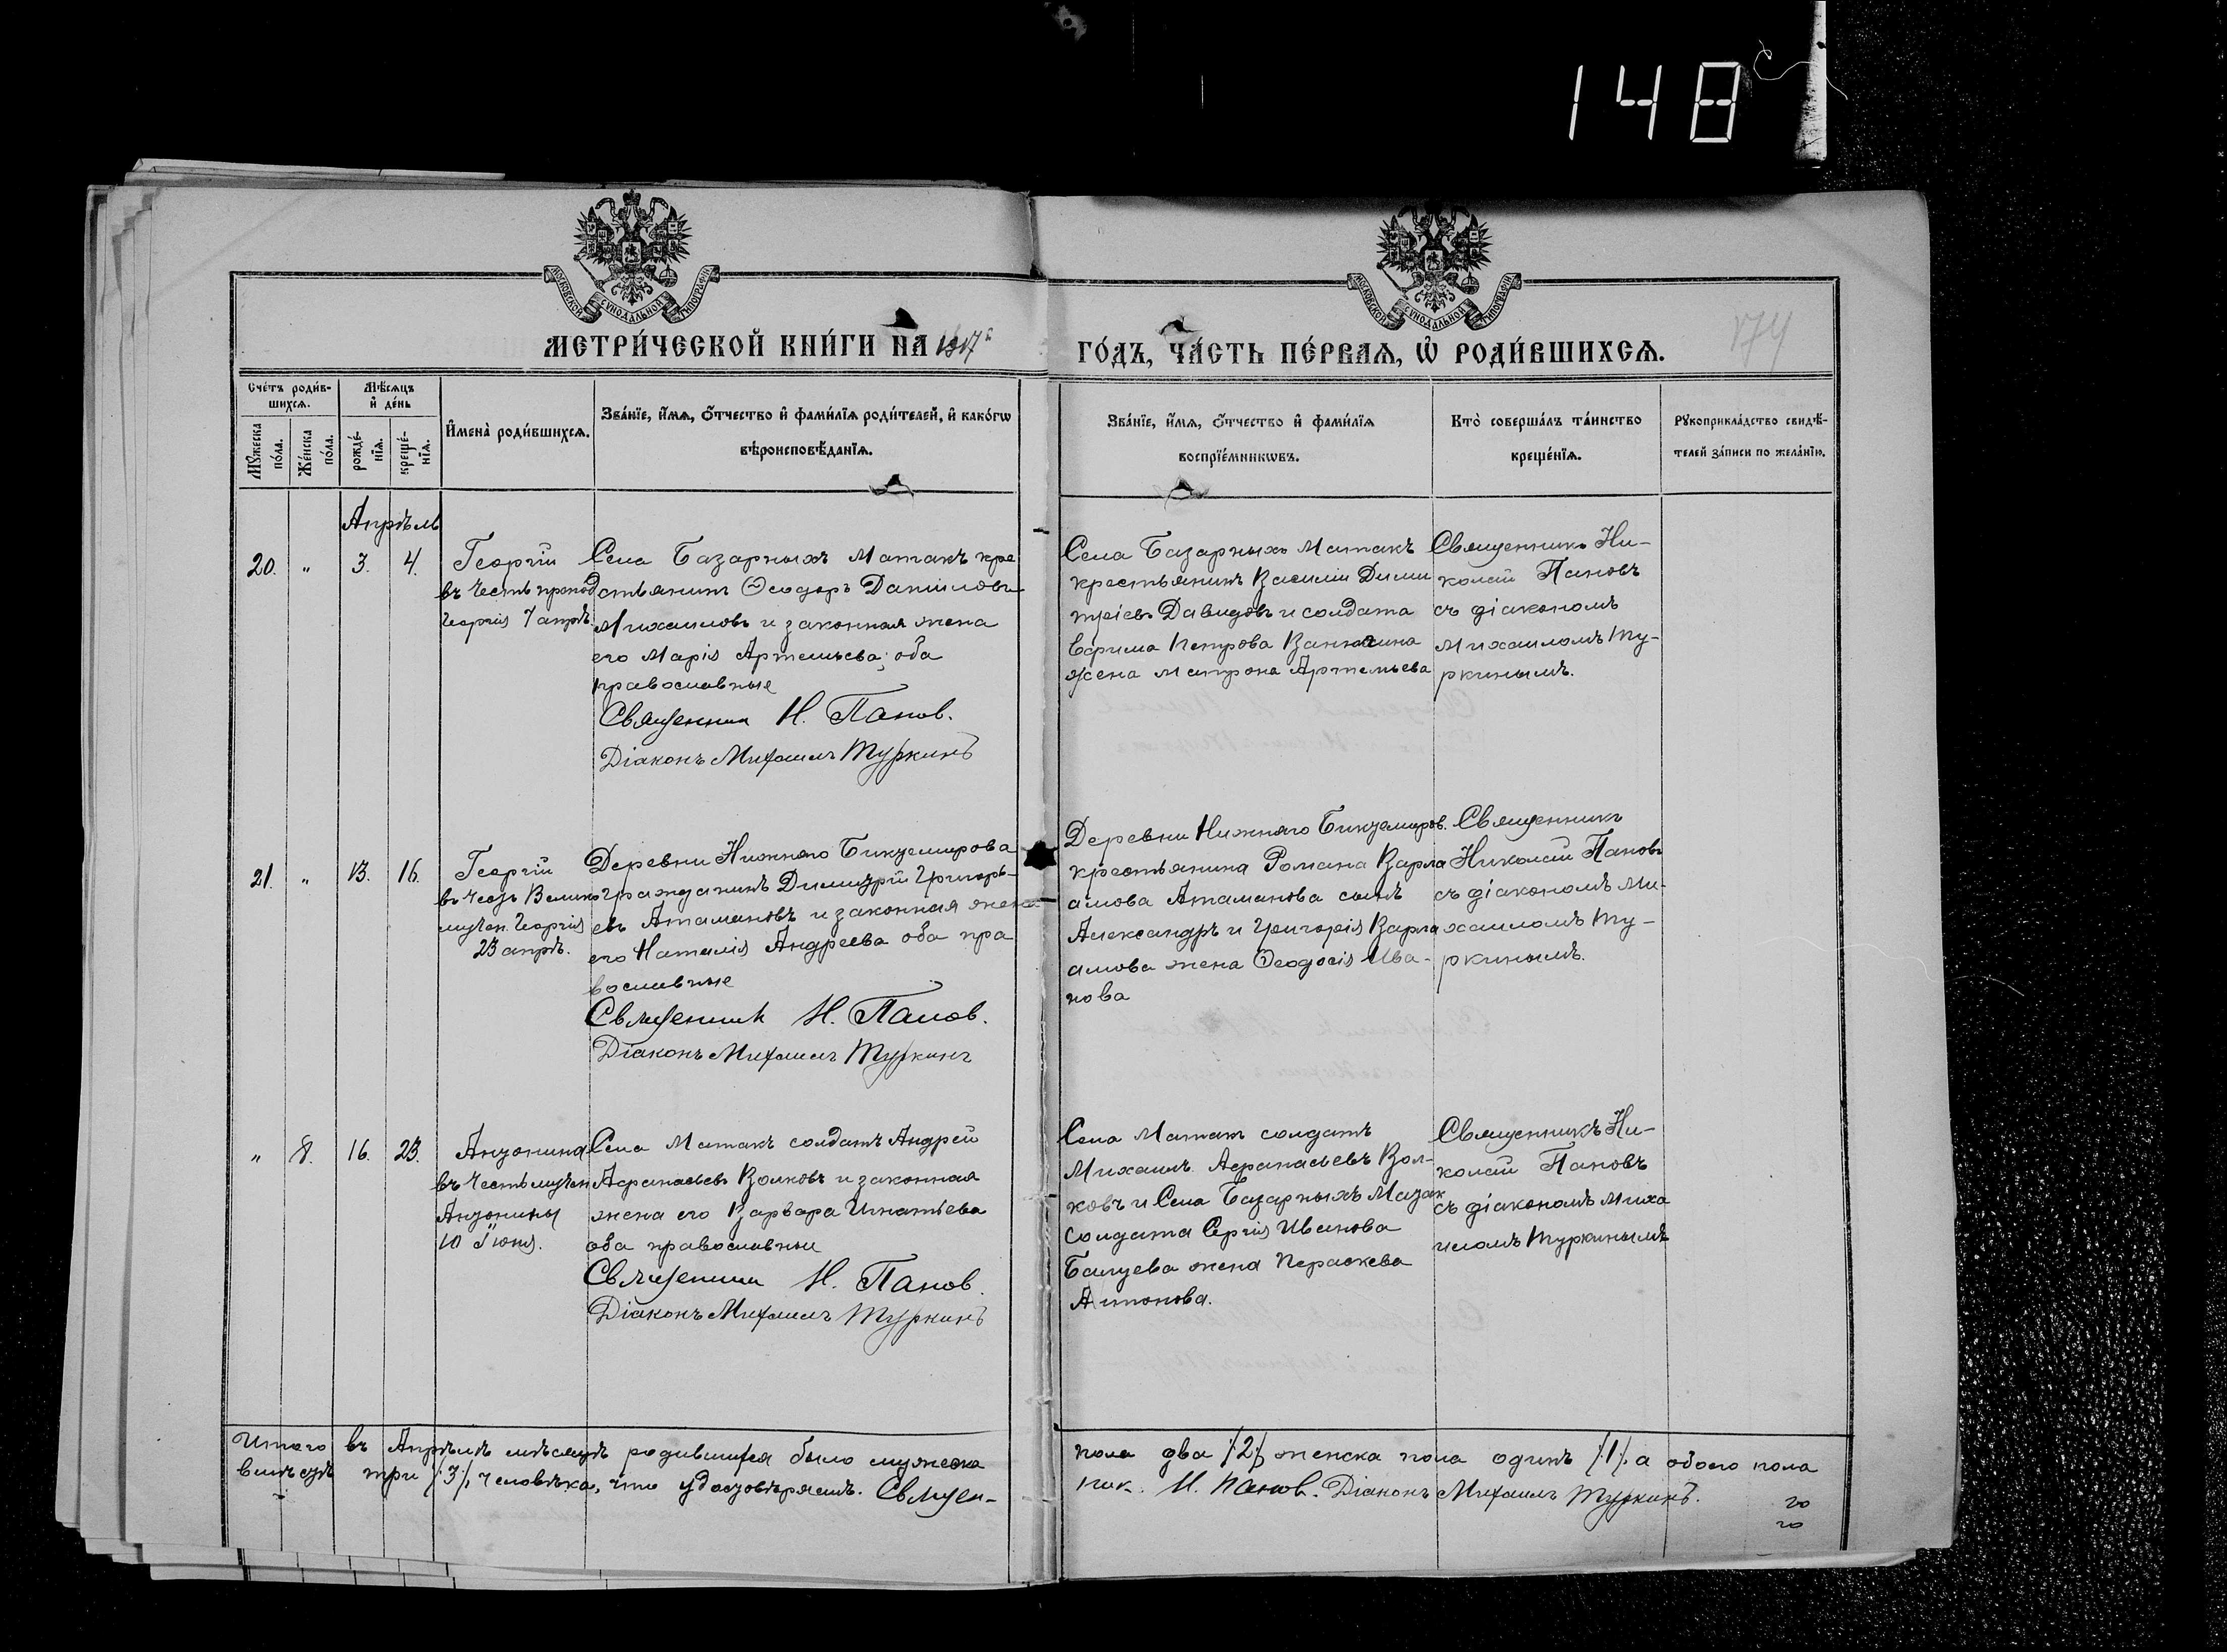 148
МОСКОВСКОЙ СѴНОДАЛЬНОЙ ТИПОГРАФІИ
МОСКОВСКОЙ СѴНОДАЛЬНОЙ ТИПОГРАФІИ
МЕТРИ́ЧЕСКОЙ КНИ́ГИ НА 1917 г
ГО́ДЪ, ЧА́СТЬ ПЕ́РВАѦ, Ѡ҆ РОДИ́ВШИХСѦ.
174
Сче́тъ роди́в-
шихсѧ.
Мѣ́сѧцъ
и҆ де́нь
Мꙋ́жеска
по́ла.
Же́нска
по́ла.
рожде́-
нїѧ.
креще́-
нїѧ.
И҆мена̀ роди́вшихсѧ.
Зва́нїе, и҆́мѧ, ѻ҆́тчество и҆ фами́лїѧ роди́телей, и҆ како́гѡ
вѣроисповѣ́данїѧ.
Зва́нїе, и҆́мѧ, ѻ҆́тчество и҆ фами́лїѧ
воспрїе́мникѡвъ.
Кто̀ соверша́лъ та́инство
креще́нїѧ.
Рꙋкоприкла́дство свидѣ́-
телей за́писи по жела́нїю.
Апрѣль
20. " 3. 4.
Георгій
въ честь препод
Георгія 7 апрѣ.
Села Базарныхъ Матакъ кре
стьянинъ Ѳеодоръ Даніиловъ
Михаиловъ и законная жена
его Марія Артемьева; оба
православные
Священник Н. Панов.
Діаконъ Михаилъ Туркинъ
Села Базарныхъ Матакъ
крестьянинъ Василій Дими
тріевъ Давидовъ и солдата
Ефрима Петрова Ванюшина
жена Матрона Артемьева
Священникъ Ни-
колай Пановъ
съ діакономъ
Михаиломъ Ту-
ркинымъ.
21. " 13. 16.
Георгій
въ честь Велико
мучен. Георгія
23 апрѣ.
Деревни Нижняго Биктемирова
гражданинъ Димитрій Григорь-
евъ Атамановъ и законная жена
его Наталія Андреева оба пра
вославные
Священник Н. Панов.
Діаконъ Михаилъ Туркинъ
Деревни Нижняго Биктемиров.
крестьянина Романа Варла
амова Атаманова сынъ
Александръ и Григорія Варла
амова жена Ѳеодосія Ива-
нова
Священникъ
Николай Пановъ
съ діакономъ Ми-
хаиломъ Ту-
ркинымъ.
" 8. 16. 23.
Антонина
въ честь мучен
Антонины
10 Іюня.
Села Матакъ солдатъ Андрей
Афанасьевъ Волковъ и законная
жена его Варвара Игнатіева
оба православные
Священник Н. Панов.
Діаконъ Михаилъ Туркинъ
Села Матакъ солдатъ
Михаилъ Афанасьевъ Вол-
ковъ и Села Базарныхъ Матак
солдата Сергія Иванова
жена Параскева
Антонова.
Священникъ Ни-
колай Пановъ
съ діакономъ Миха
иломъ Туркинымъ
Итого въ Апрѣлѣ мѣсяцѣ родившихся было мужеска
пола два /2/, женска пола одинъ /1/. а обоего пола
вмѣстѣ три /3/, человѣка, что удостовѣряемъ. Священ-
ник. Н. Панов. Діаконъ Михаилъ Туркинъ.